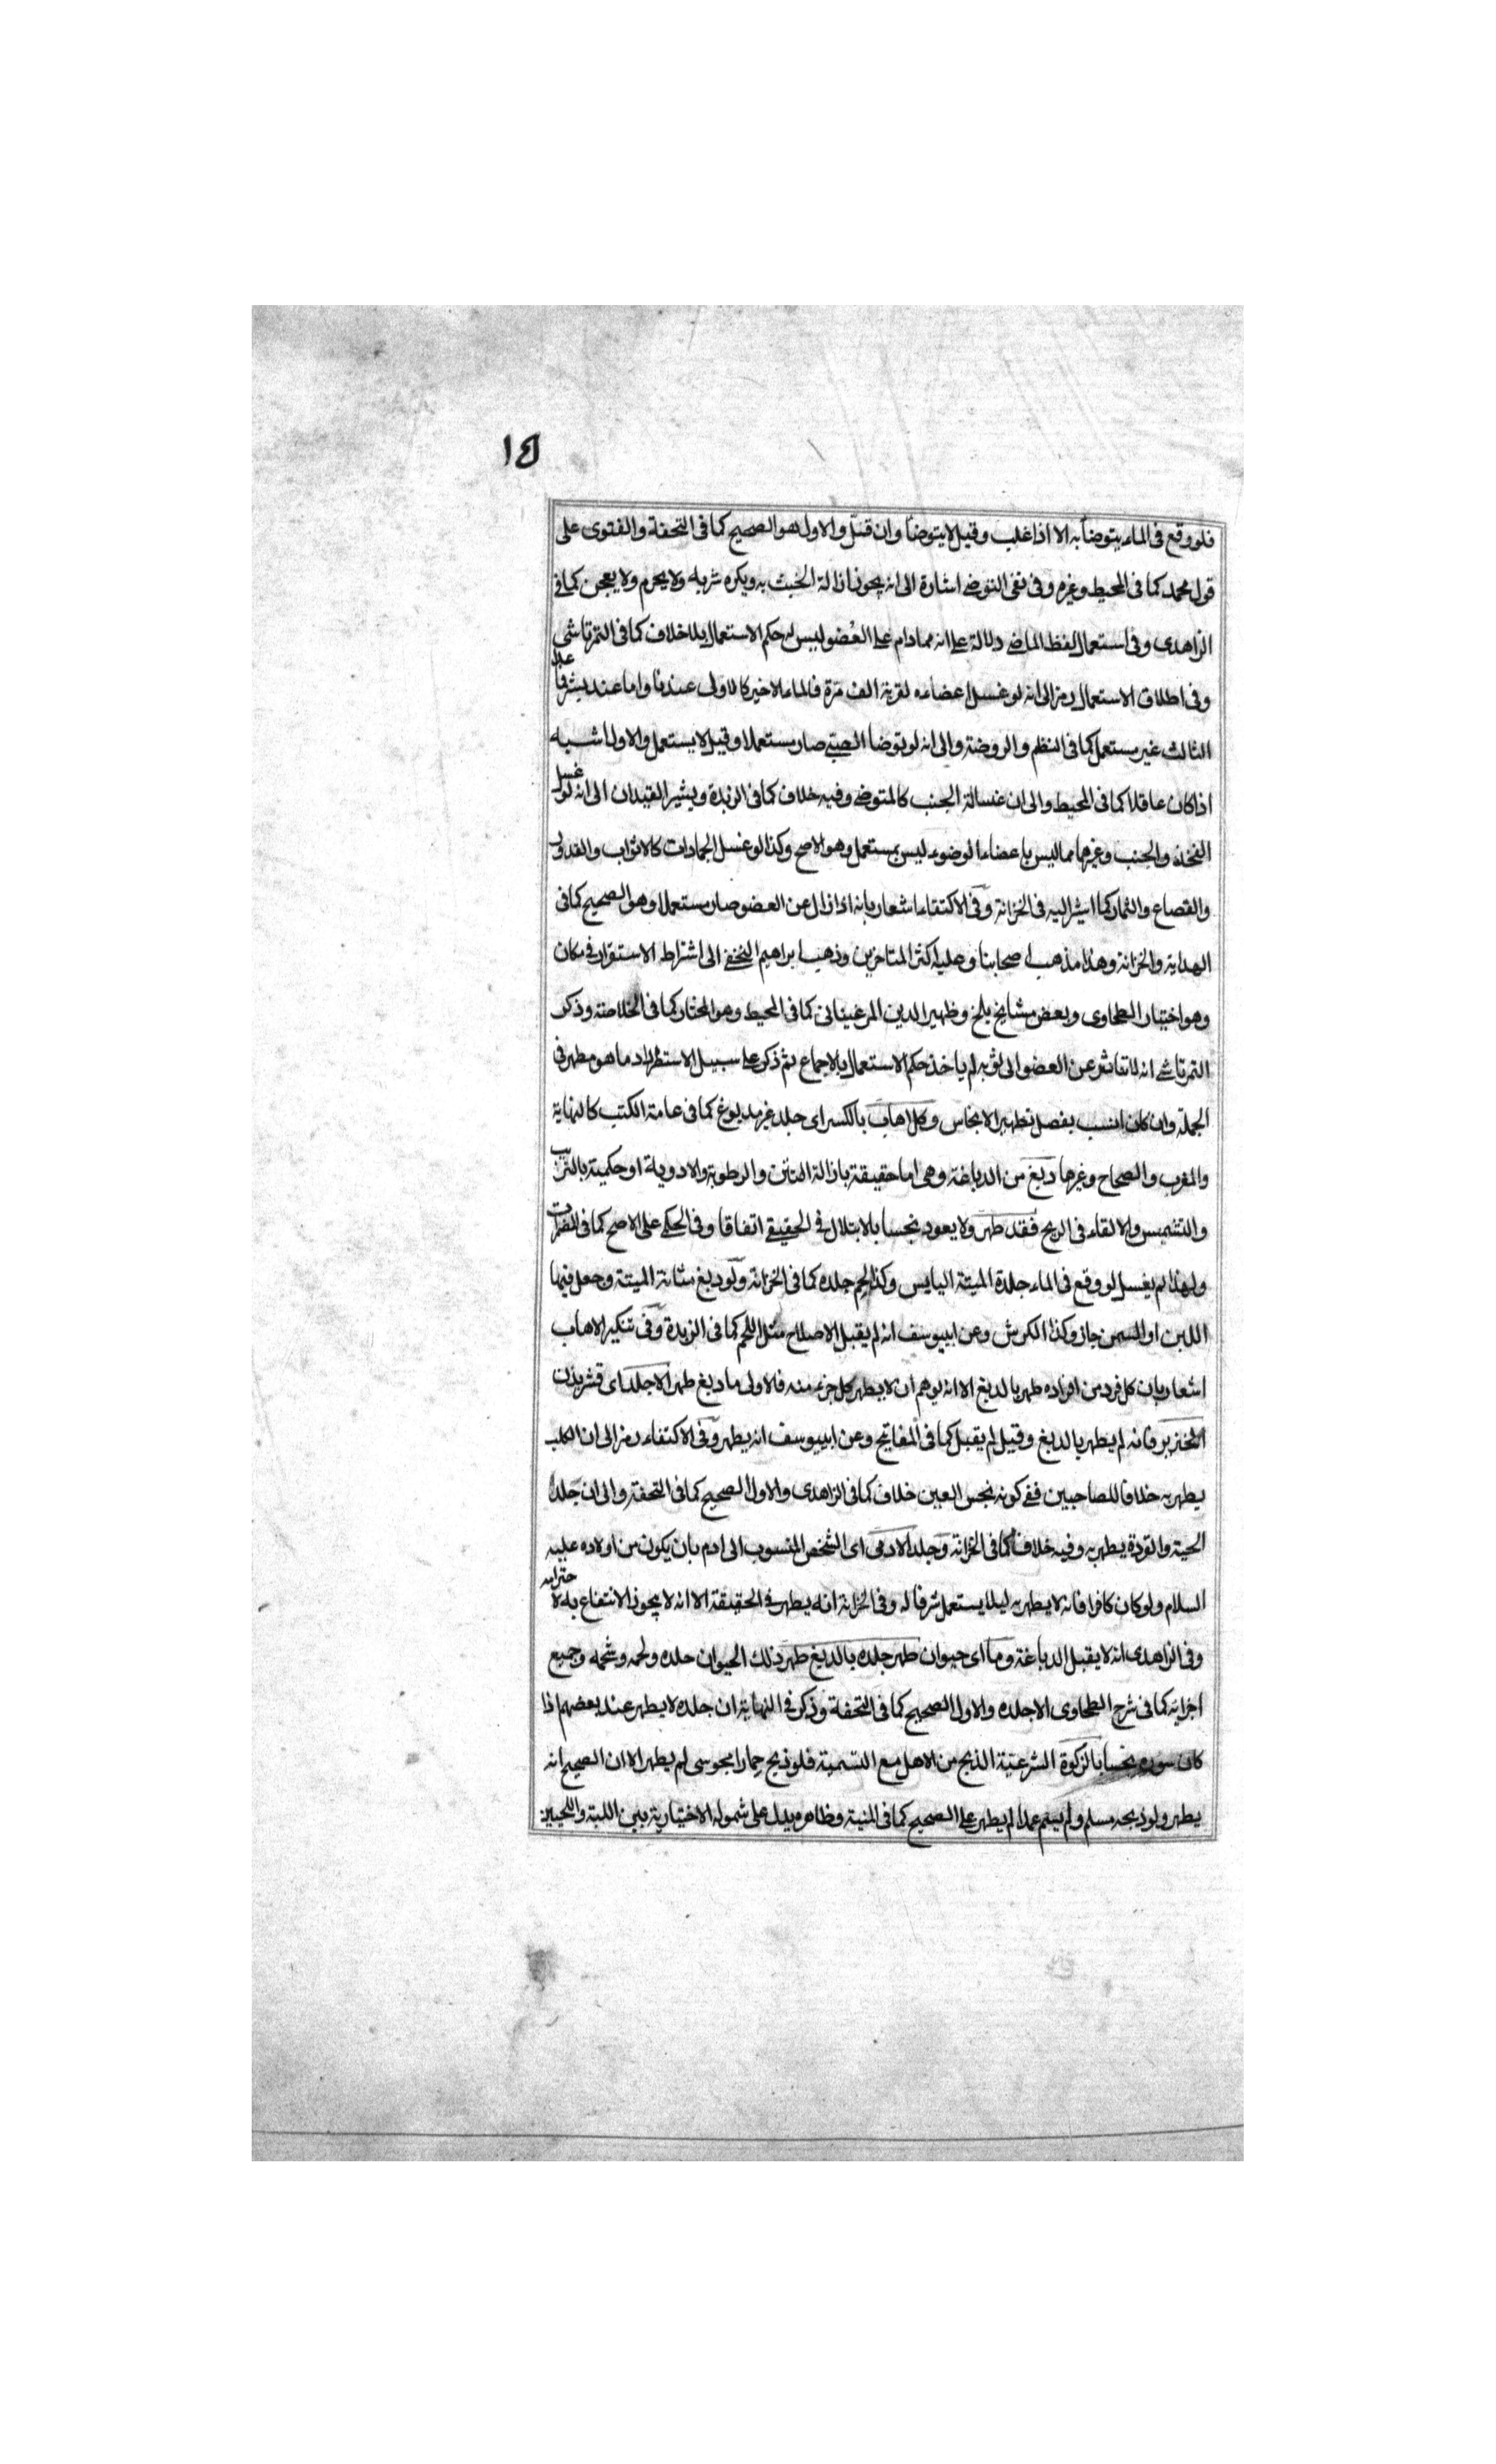 ١٤
فلو وقع فى الماء يتوضأ به الا اذا غلب وقيل لا يتوضأ وان قل والاول هو الصحيح كما فى التحفة والفتوى على
قول محمد كما فى المحيط وغيره وفى نفى التوضى اشارة الى انه يجوز ازالة الخبث به ويكره شربه ولا يحرم ولا يعجن كما فى
الزاهدى وفى استعمال لفظ الماضى دلالة على انه مما دام على العضو ليس له حكم الاستعمال بلا خلاف كما فى التمرتاشى
وفى اطلاق الاستعمال رمز الى انه لو غسل اعضاءه لقربة الف مرة فالماء الاخير كالاولى عندنا واما عند بشر فما عدا
الثالث غير مستعمل كما فى النظم والروضة والى انه لو توضا الصبى صار مستعملا وقيل لا يستعمل والاول اشبه
اذا كان عاقلا كما فى المحيط والى ان غسالة الجنب كالمتوضى وفيه خلاف كما فى الزبدة ويشير القيدان الى انه لو غسل
الفخذ والجنب وغيرهما مما ليس باعضاء الوضوء ليس بمستعمل وهو الاصح وكذا لو غسل الجمادات كالاثواب والقدور
والقصاع والثمار كما اشير اليه فى الخزانة وفى الاكتفاء اشعار بانه اذا زال عن العضو صار مستعملا وهو الصحيح كما فى
الهداية والخزانة وهذا مذهب اصحابنا وعليه اكثر المتاخرين وذهب ابراهيم النخعى الى اشتراط الاستقرار فى مكان
وهو اختيار الطحاوى وبعض مشايخ بلخ وظهير الدين المرغينانى كما فى المحيط وهو المختار كما فى الخلاصة وذكر
التمرتاشى انه لا تناثر عن العضو الى ثوبه لم ياخذ حكم الاستعمال بالاجماع ثم ذكر على سبيل الاستطراد ما هو مطهر فى
الجملة وان كان انسب بفصل تطهير الانجاس وكل اهاب بالكسر اى جلد غير مدبوغ كما فى عامة الكتب كالنهاية
والمغرب والصحاح وغيرها دبغ من الدباغة وهى اما حقيقة بازالة النتن والرطوبة والادوية او حكمية بالتتريب
والتشميس والالقاء فى الريح فقد طهر ولا يعود نجسا بالابتلال فى الحقيقى اتفاقا وفى الحكمى على الاصح كما فى المضمرات
ولهذا لم يغسل لو وقع فى الماء جلدة الميتة اليابس وكذا لحم جلده كما فى الخزانة ولو دبغ مثانة الميتة وجعل فيها
اللبن او السمن جاز وكذا الكرش وعن ابيوسف انه لم يقبل الاصلاح مثل اللحم كما فى الزبدة وفى تنكير الاهاب
اشعار بان كل فرد من افراده طهر بالدبغ الا انه يوهم ان لا يطهر كل جزء منه فالاولى ما دبغ طهر الا جلد اى قشر بدن
الخنزير فانه لم يطهر بالدبغ وقيل لم يقبل كما فى المفاتيح وعن ابيوسف انه يطهر وفى الاكتفاء رمز الى ان الكلب
يطهر به خلافا للصاحبين ففى كونه نجس العين خلاف كما فى الزاهدى والاول الصحيح كما فى التحفة والى ان جلد
الحية والقردة يطهر به وفيه خلاف كما فى الخزانة وجلد الادمى اى الشخص المنسوب الى ادم بان يكون من اولاده عليه
السلام ولو كان كافرا فانه لا يطهر به ليلا يستعمل شرفا له وفى الخزانة انه يطهر فى الحقيقة الا انه لا يجوز الانتفاع به لاحترامه
وفى الزاهدى انه لا يقبل الدباغة وما اى حيوان طهر جلده بالدبغ طهر ذلك الحيوان جلده ولحمه وشحمه وجميع
اجزايه كما فى شرح الطحاوى الا جلده والاول الصحيح كما فى التحفة وذكر فى النهاية ان جلده لا يطهر عند بعضهم اذا
كان سوره نجسا بالزكوة الشرعية الذبح من الاهل مع التسمية فلو ذبح حمارا مجوسى لم يطهر الا ان الصحيح انه
يطهر ولو ذبحه مسلم ولم يسم عمدا لم يطهر على الصحيح كما فى المنية وظاهره يدل على شموله الاختيارية بين اللبة واللحيين